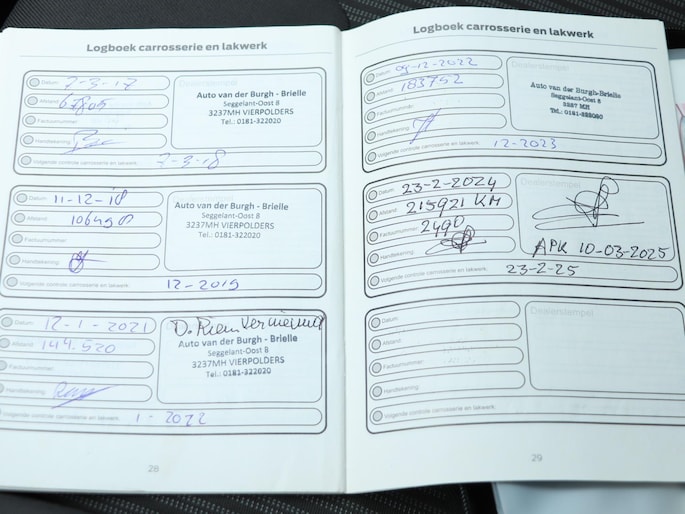 Logboek carrosserie en lakwerk
Datum: 7-3-17
Afstand: 67805
Factuurnummer:
Handtekening:
Volgende controle carrosserie en lakwerk: 7-3-18
Auto van der Burgh - Brielle
Seggelant-Oost 8
3237MH VIERPOLDERS
Tel.: 0181-322020
Datum: 11-12-18
Afstand: 106450
Factuurnummer:
Handtekening:
Volgende controle carrosserie en lakwerk: 12-2019
Auto van der Burgh - Brielle
Seggelant-Oost 8
3237MH VIERPOLDERS
Tel.: 0181-322020
Datum: 12-1-2021
Afstand: 144.520
Factuurnummer:
Handtekening:
Volgende controle carrosserie en lakwerk: 1-2022
D. Riem Vernieuwd
Auto van der Burgh - Brielle
Seggelant-Oost 8
3237MH VIERPOLDERS
Tel.: 0181-322020
28
Logboek carrosserie en lakwerk
Datum: 09-12-2022
Afstand: 183752
Factuurnummer:
Handtekening:
Volgende controle carrosserie en lakwerk: 12-2023
Dealerstempel
Auto van der Burgh-Brielle
Seggelant-Oost 8
3237 MH
Datum: 23-2-2024
Afstand: 215921 KM
Factuurnummer: 2490
Handtekening:
Volgende controle carrosserie en lakwerk: 23-2-25
Dealerstempel
APK 10-03-2025
Datum:
Afstand:
Factuurnummer:
Handtekening:
Volgende controle carrosserie en lakwerk:
Dealerstempel
29